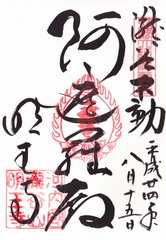 瀧谷不動
平成廿四年
八月十五日
阿遮羅殿
明王寺